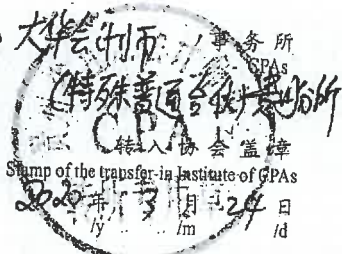 大华会计师 事务所
CPAs
(特殊普通合伙)贵州分所
CPA
转入协会盖章
Stamp of the transfer-in Institute of CPAs
2020年 3月 24日
/y /m /d